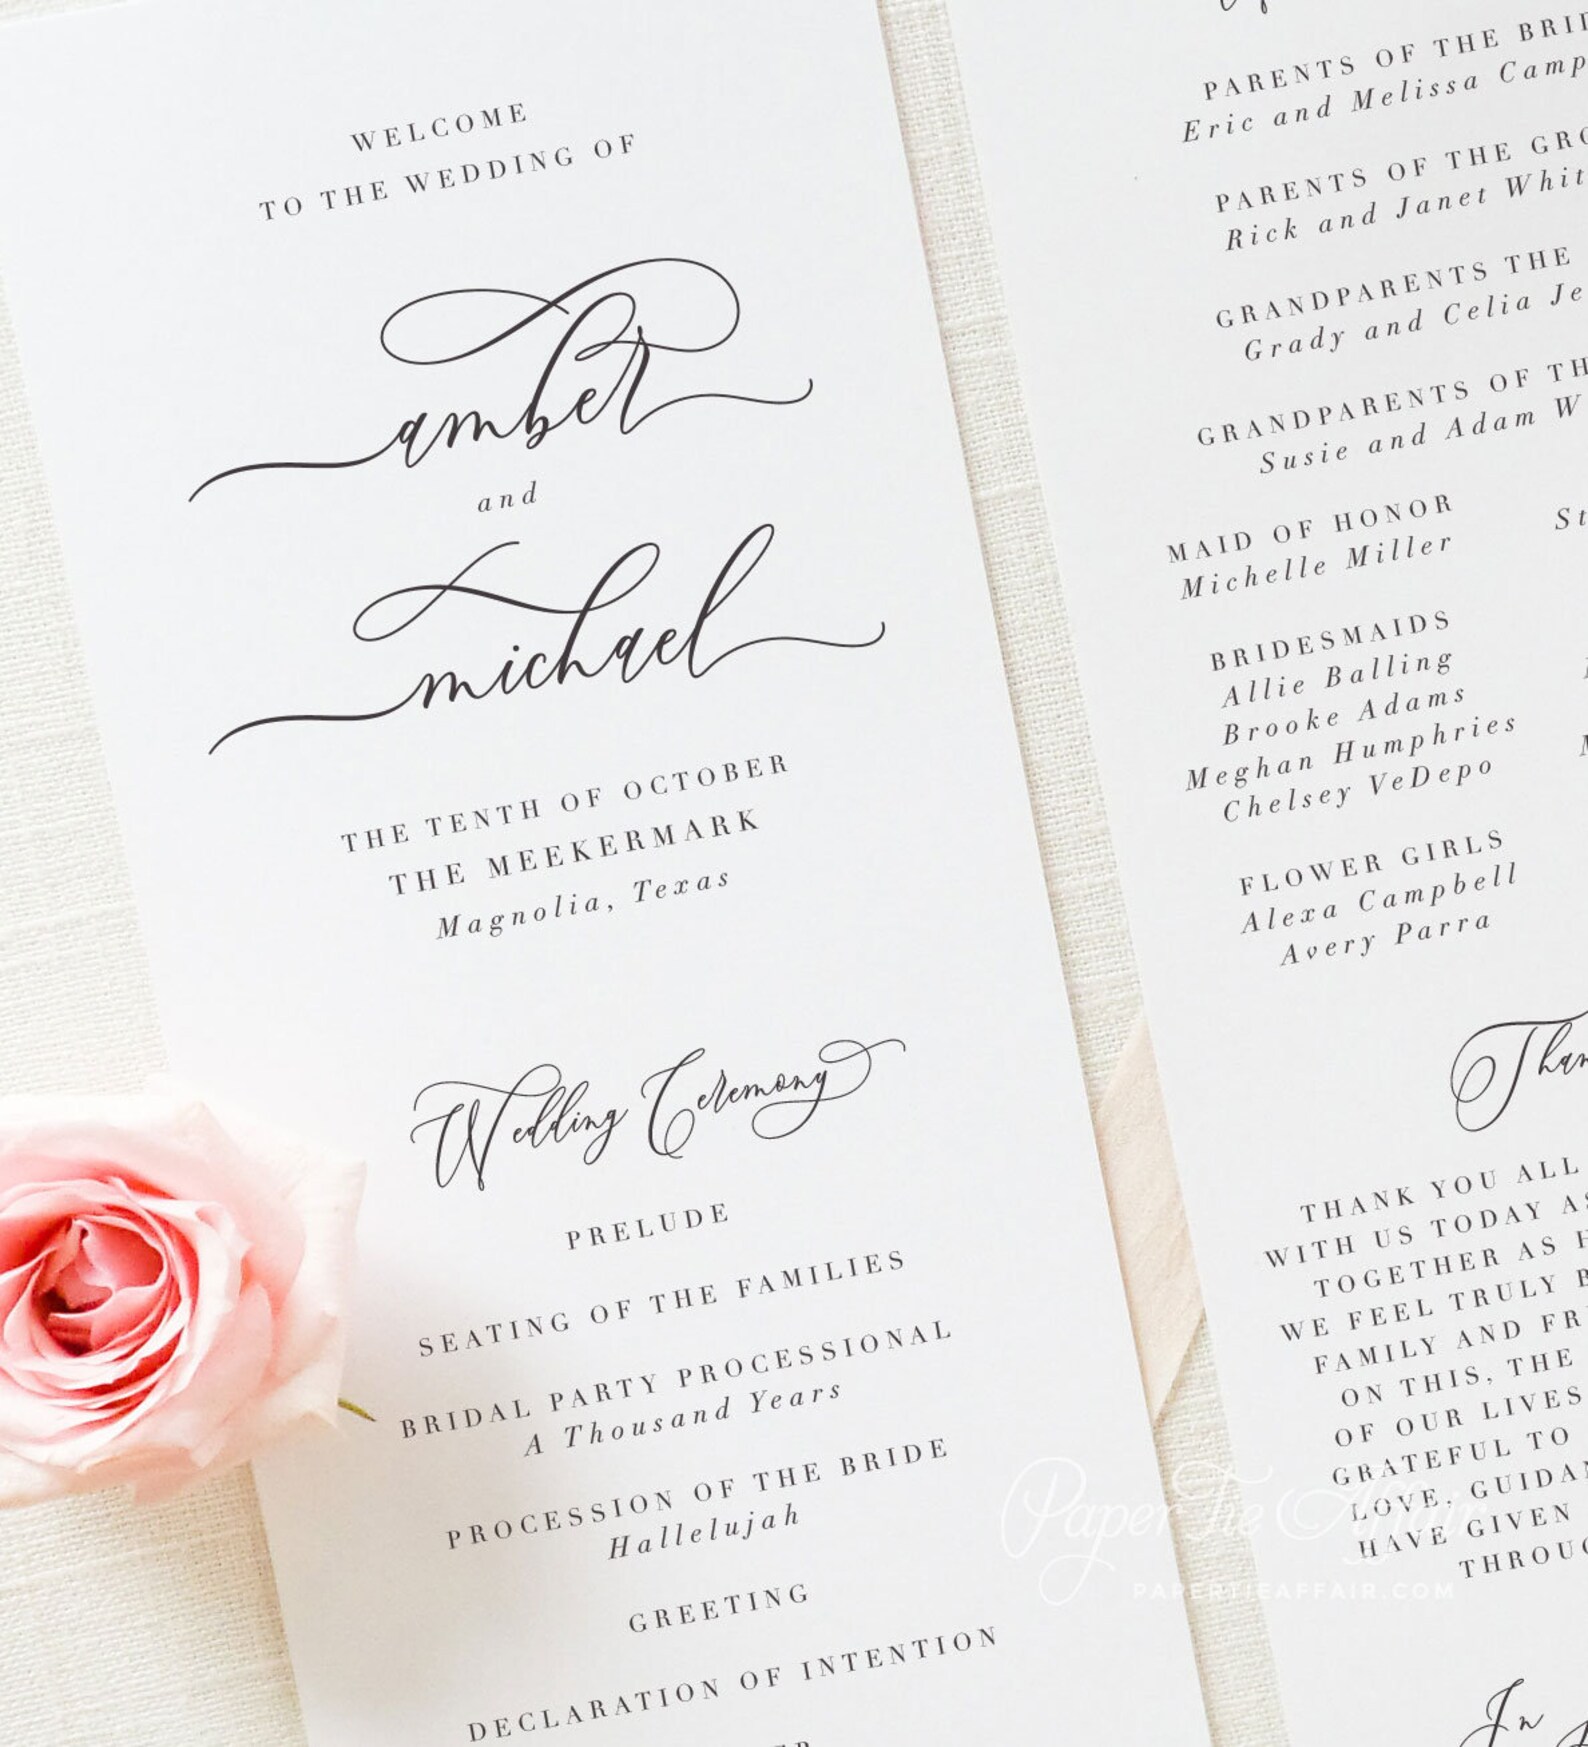 WELCOME
TO THE WEDDING OF
amber
and
michael
THE TENTH OF OCTOBER
THE MEEKERMARK
Magnolia, Texas
Wedding Ceremony
PRELUDE
SEATING OF THE FAMILIES
BRIDAL PARTY PROCESSIONAL
A Thousand Years
PROCESSION OF THE BRIDE
Hallelujah
GREETING
DECLARATION OF INTENTION
PARENTS OF THE
Eric and Melissa
PARENTS OF THE
Rick and Janet
GRANDPARENTS THE
Grady and Celia
GRANDPARENTS OF
Susie and Adam
MAID OF HONOR
Michelle Miller
BRIDESMAIDS
Allie Balling
Brooke Adams
Meghan Humphries
Chelsey VeDepo
FLOWER GIRLS
Alexa Campbell
Avery Parra
THANK YOU ALL
WITH US TODAY
TOGETHER AS
WE FEEL TRULY
FAMILY AND
ON THIS, THE
OF OUR LIVES
GRATEFUL TO
LOVE,
HAVE GIVEN
In
Paper Tie Affair
PAPERTIEAFFAIR.COM